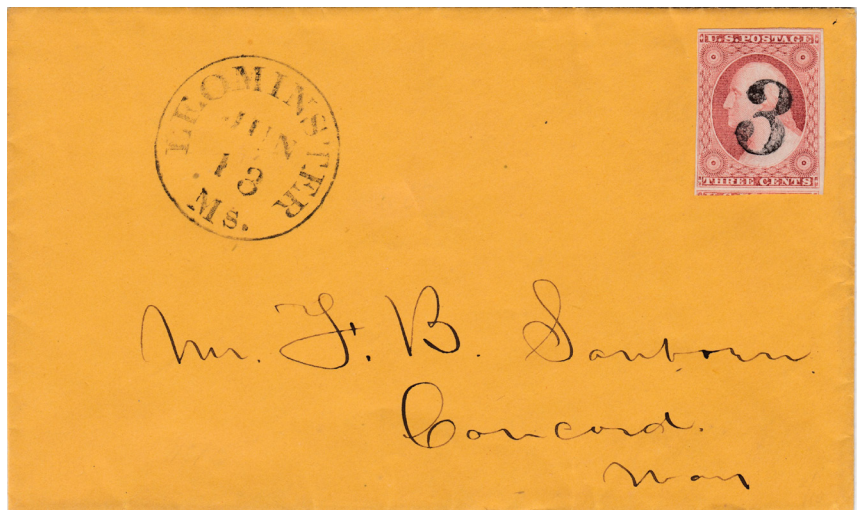 LEOMINSTER
JUN
18
Ms.
U.S. POSTAGE
3
THREE CENTS
Mr. F. B. Sanborn.
Concord.
Mass